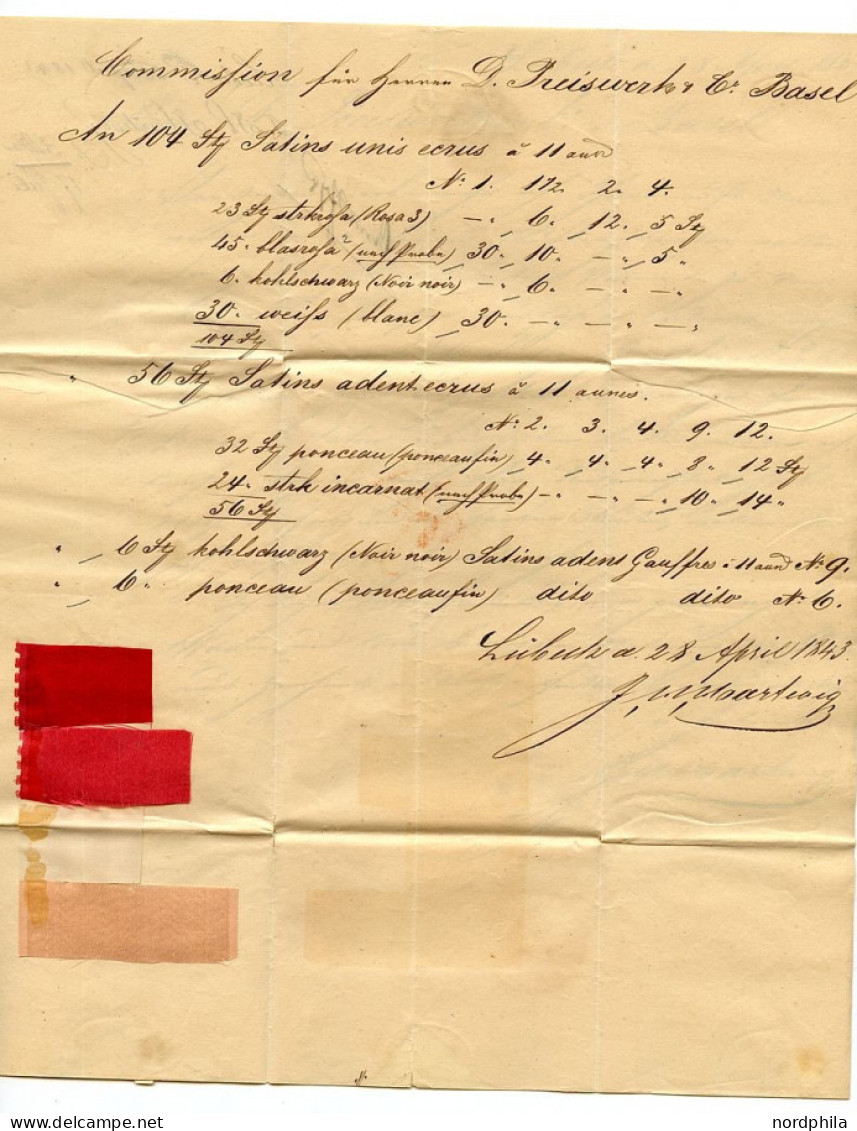 Commission für Herren D. Preiswerk & Cº Basel
An 104 Stz Satins unis ecrus à 11 aund
Nº 1. 1½. 2. 4.
23 Stz strkrosa (Rosa 3) — „ 6. „ 12. „ 5 Stz
45 „ blasrosa (nach Probe) 30. „ 10. — „ 5 „
6. kohlschwarz (Noir noir) — „ 6. — „ — „
30. weiss (blanc) „ 30. — „ — „ — „
104 Stz
„ 56 Stz Satins adent ecrus à 11 aunes.
Nº 2. 3. 4. 9. 12.
32 Stz ponceau (ponceaufin) 4 „ 4 „ 4 „ 8 „ 12 Stz
24 „ strk incarnat (nach Probe) — „ — „ — „ 10 „ 14 „
56 Stz
„ 6 Stz kohlschwarz (Noir noir) Satins adens Gauffres à 11 aund Nº 9.
„ 6 „ ponceau (ponceaufin) dito dito Nº 6.
Lübeck a. 28 April 1843.
Hartwig
nordphila